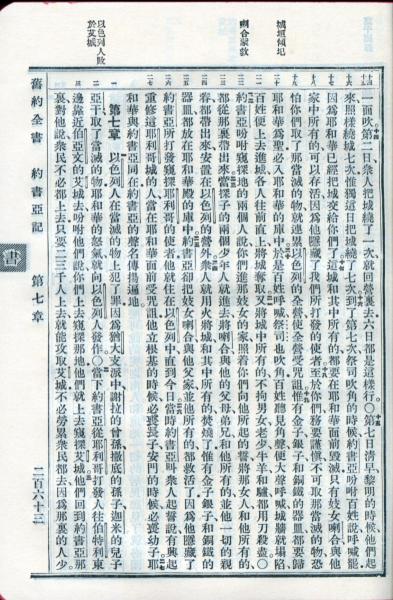 城垣傾圮
喇合蒙救
以色列人敗
於艾城
一面吹第二日衆人把城繞了一次就回營裏去六日都是這樣行〇第七日淸早黎明的時候他們起
來照樣繞城七次惟獨這日把城繞了七次到了第七次祭司吹角的時候約書亞吩咐百姓說呼喊罷
因爲耶和華已經把城交給你們了這城和其中所有的都要在耶和華面前毀滅只有妓女喇合與他
家中所有的可以存活因爲他隱藏了我們所打發的使者至於你們務要謹愼不可取那當滅的物恐
怕你們取了那當滅的物就連累以色列的全營使全營受咒詛惟有金子銀子和銅鐵的器皿都要歸
耶和華爲聖必入耶和華的庫中於是百姓呼喊祭司也吹角百姓聽見角聲便大聲呼喊城牆就塌陷
百姓便上去進城各人往前直上將城奪取又將城中所有的不拘男女老少牛羊和驢都用刀殺盡〇
約書亞吩咐窺探地的兩個人說你們進那妓女的家照着你們向他所起的誓將那女人和他所有的
都從那裏帶出來當探子的兩個少年人就進去將喇合與他的父母弟兄和他所有的並他一切的親
眷都帶出來安置在以色列的營外衆人就用火將城和其中所有的焚燒了惟有金子銀子和銅鐵的
器皿都放在耶和華殿的庫中約書亞卻把妓女喇合與他父家並他所有的都救活了因爲他隱藏了
約書亞所打發窺探耶利哥的使者他就住在以色列中直到今日當時約書亞叫衆人起誓說有興起
重修這耶利哥城的人當在耶和華面前受咒詛他立根基的時候必喪長子安門的時候必喪幼子耶
和華與約書亞同在約書亞的聲名傳揚遍地
第七章 以色列人在當滅的物上犯了罪因爲猶大支派中謝拉的曾孫撒底的孫子迦米的兒子
亞干取了當滅的物耶和華的怒氣就向以色列人發作〇當下約書亞從耶利哥打發人往伯特利東
邊靠近伯亞文的艾城去吩咐他們說你們上去窺探那地他們就上去窺探艾城他們回到約書亞那
裏對他說衆民不必都上去只要二三千人上去就能攻取艾城不必勞累衆民都去因爲那裏的人少
舊約全書 約書亞記 第七章 二百六十三
書